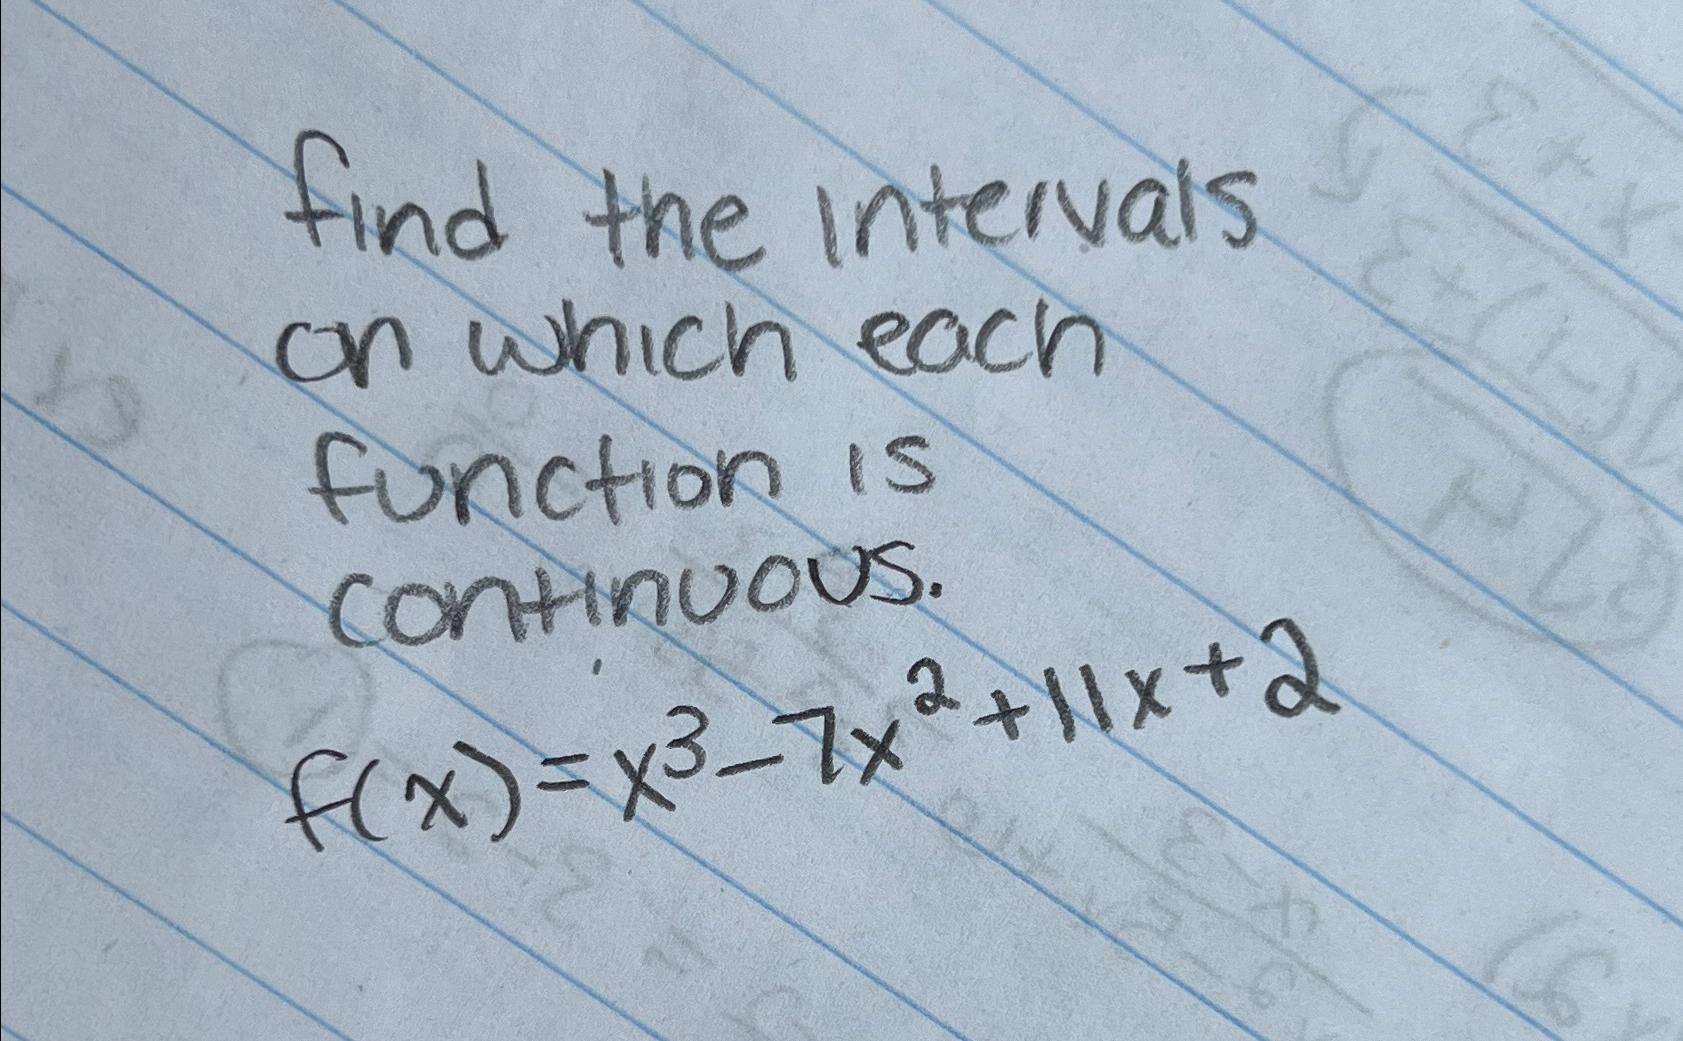 find the intervals
on which each
function is
continuous.
f(x)=x³-7x²+11x+2